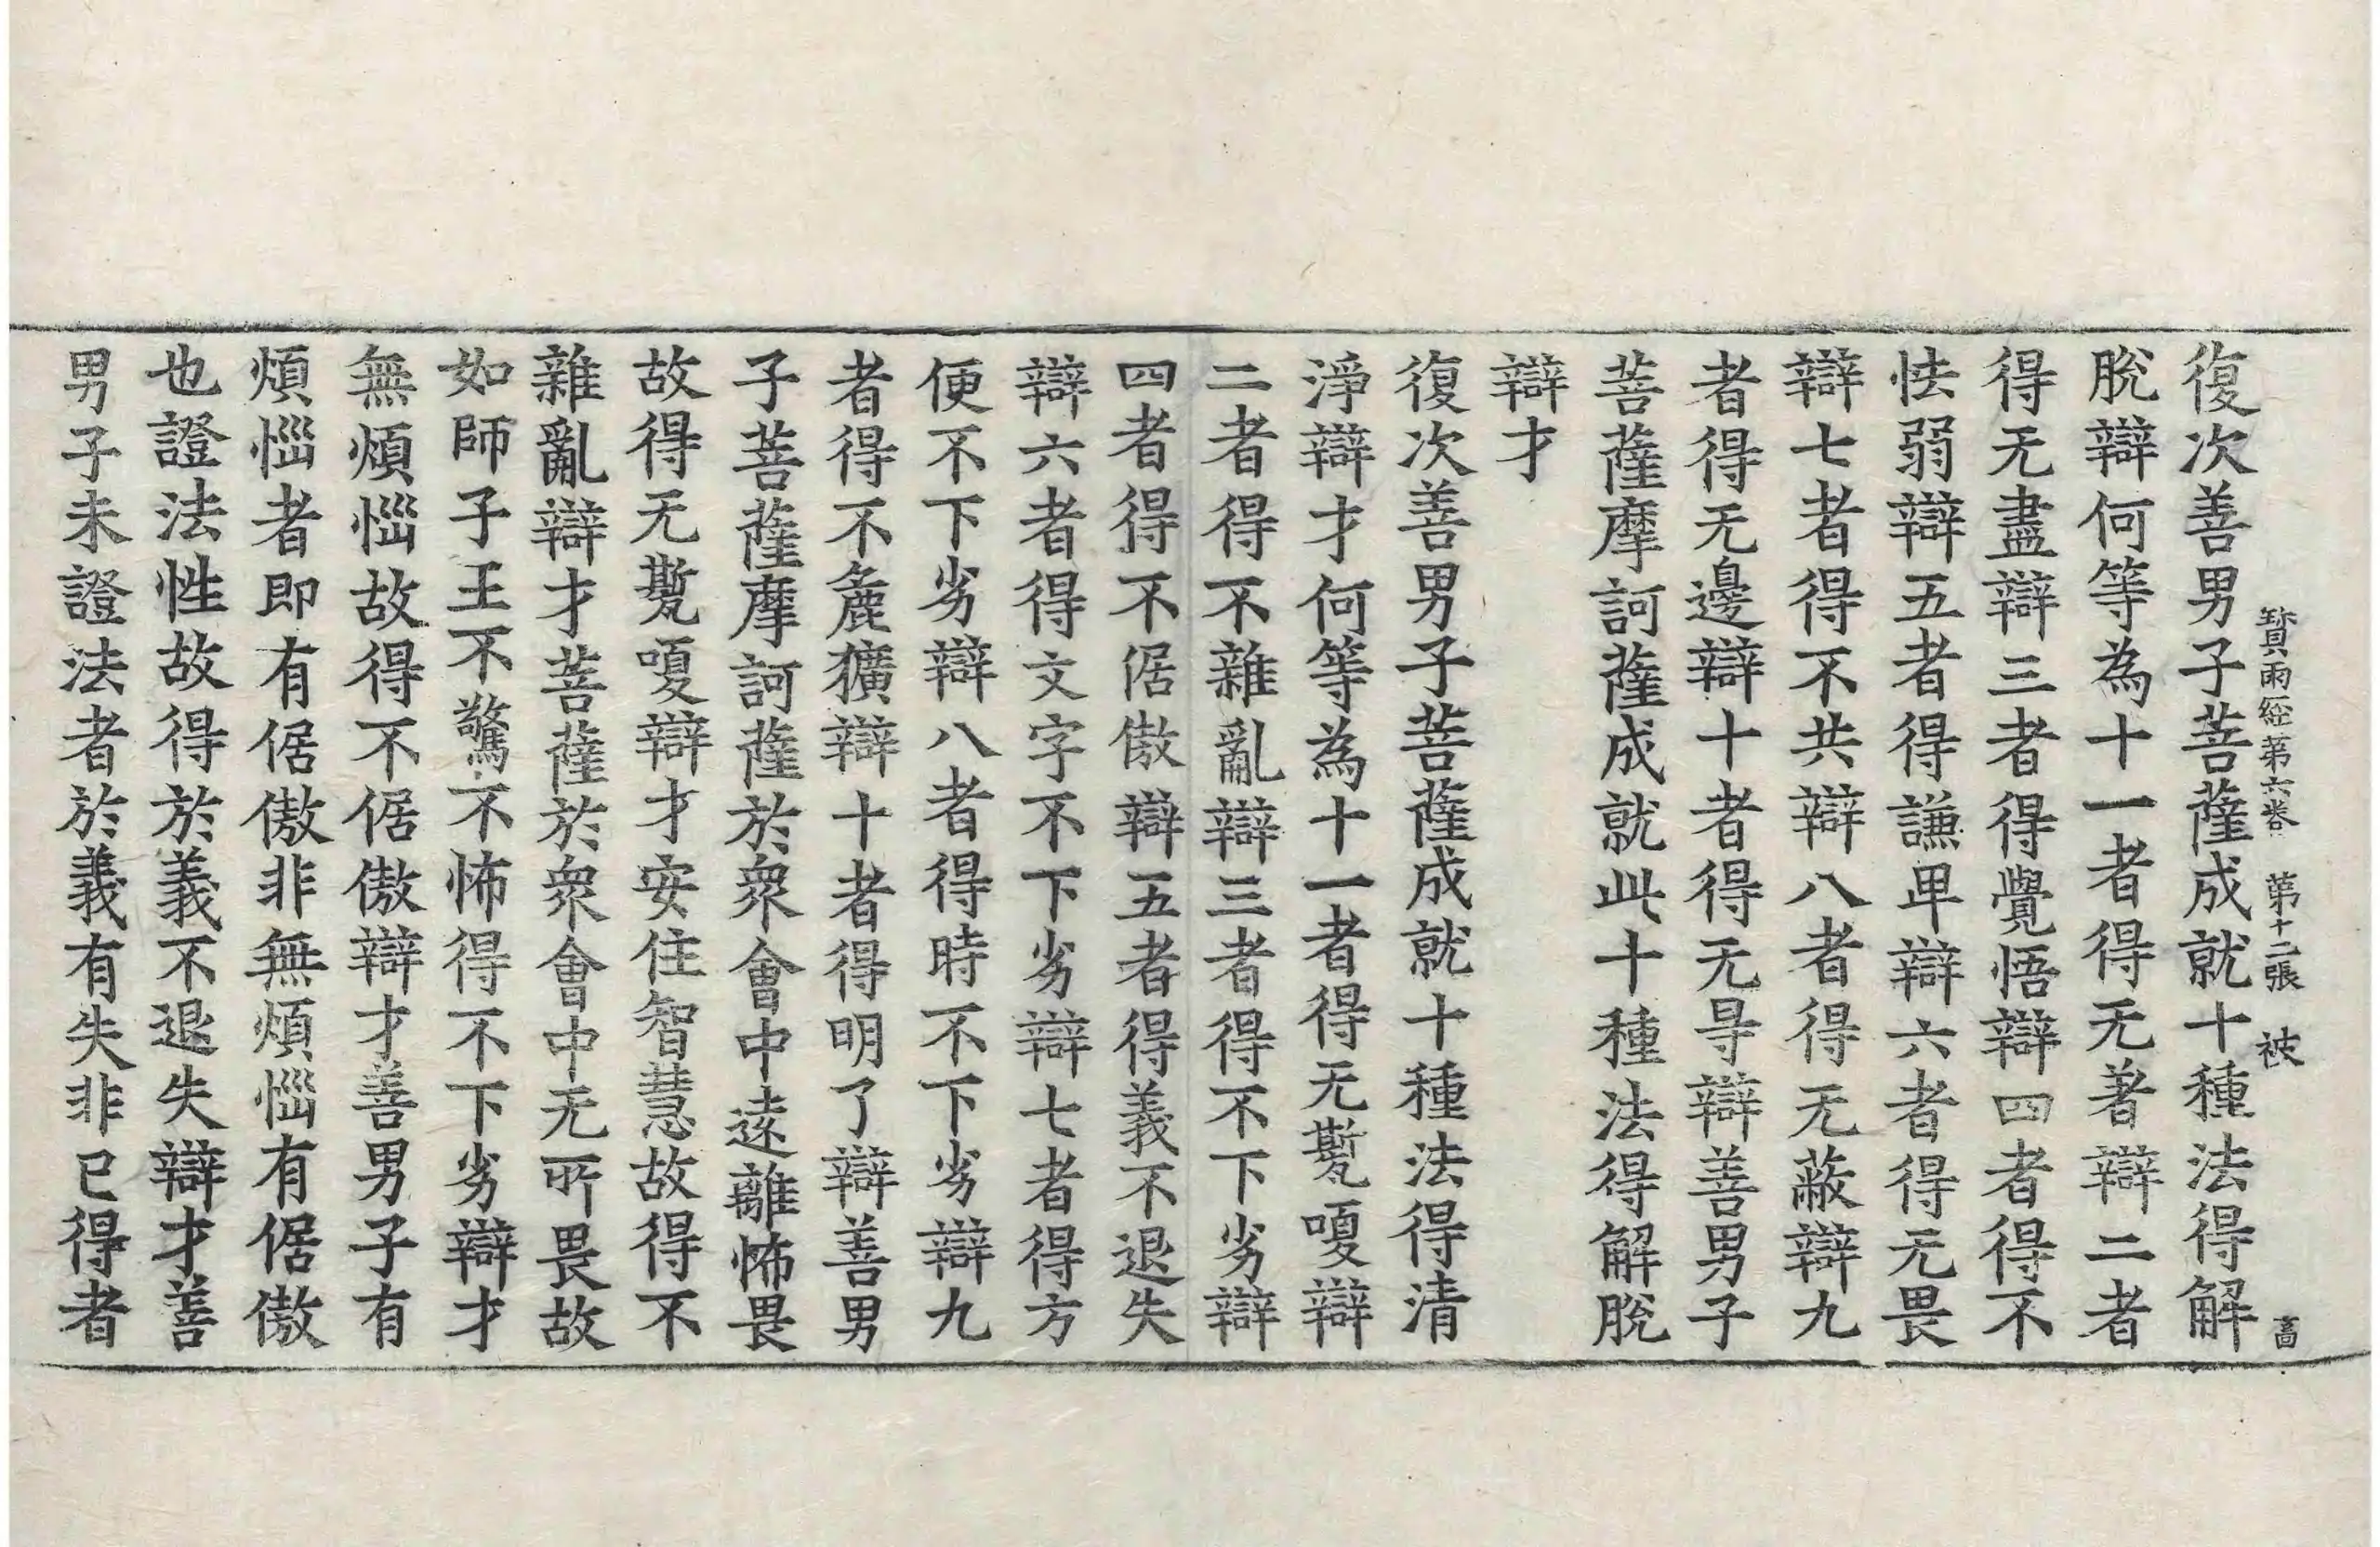 寶雨經第六卷 第十二張 被 啚
復次善男子菩薩成就十種法得解
脫辯何等為十一者得无著辯二者
得无盡辯三者得覺悟辯四者得不
怯弱辯五者得謙卑辯六者得无畏
辯七者得不共辯八者得无蔽辯九
者得无邊辯十者得无㝵辯善男子
菩薩摩訶薩成就此十種法得解脫
辯才
復次善男子菩薩成就十種法得清
淨辯才何等為十一者得无嗄辯
二者得不雜亂辯三者得不下劣辯
四者得不倨傲辯五者得義不退失
辯六者得文字不下劣辯七者得方
便不下劣辯八者得時不下劣辯九
者得不麁獷辯十者得明了辯善男
子菩薩摩訶薩於衆會中遠離怖畏
故得无嗄辯才安住智慧故得不
雜亂辯才菩薩於衆會中无所畏故
如師子王不驚不怖得不下劣辯才
無煩惱故得不倨傲辯才善男子有
煩惱者即有倨傲非無煩惱有倨傲
也證法性故得於義不退失辯才善
男子未證法者於義有失非已得者